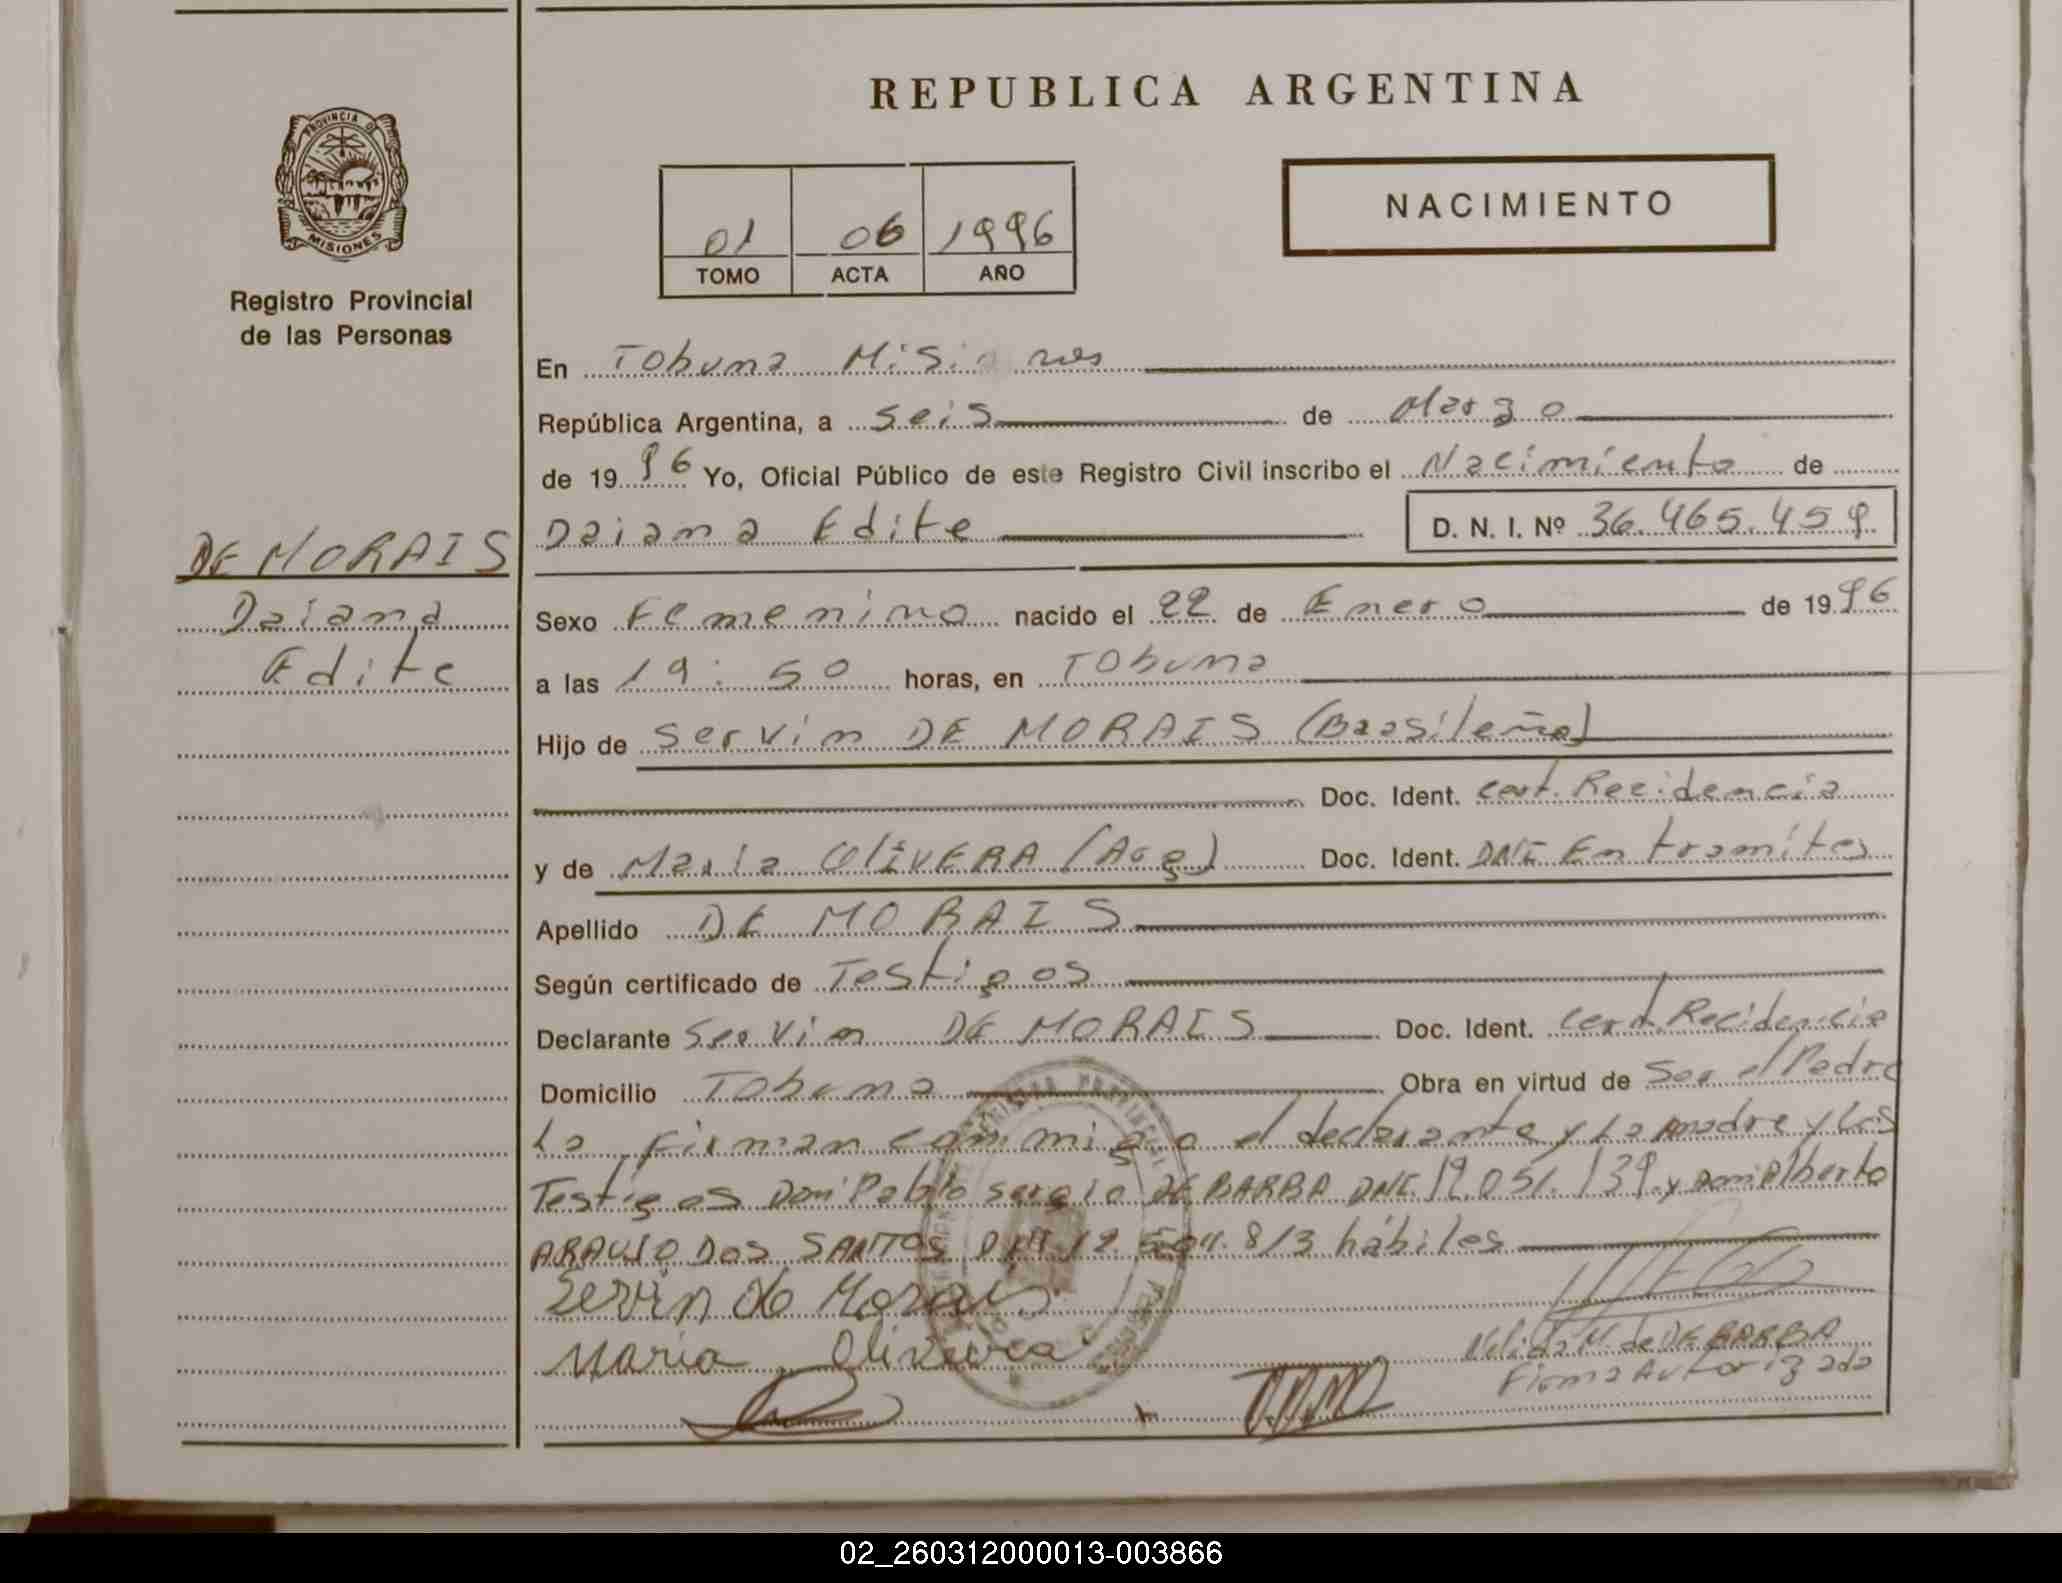 REPUBLICA ARGENTINA
PROVINCIA DE
MISIONES
Registro Provincial
de las Personas
01 06 1996
TOMO ACTA AÑO
NACIMIENTO
En Tobuna Misiones
República Argentina, a seis de Marzo
de 1996 Yo, Oficial Público de este Registro Civil inscribo el Nacimiento de
DE MORAIS
Daiana
Edite
Daiana Edite D. N. I. Nº 36.465.459
Sexo Femenino nacido el 22 de Enero de 1996
a las 19:50 horas, en Tobuna
Hijo de Servin DE MORAIS (Brasileño)
Doc. Ident. cert. Recidencia
y de Maria OliVERA (Arg) Doc. Ident. DNI En tramites
Apellido DE MORAIS
Según certificado de Testigos
Declarante Servin DE MORAIS Doc. Ident. cert. Recidencia
Domicilio Tobuna Obra en virtud de Ser el Padre
La firman conmigo el declarante y La madre y Los
Testigos Don Pablo sergio DE BARBA DNI. 19.051.139. y Don Alberto
ARAUJO DOS SANTOS DNI 12. 813 hábiles
Servin de Morais
Maria Oliveira
Nelida M. de DE BARBA
Firma Autorizada
02_260312000013-003866